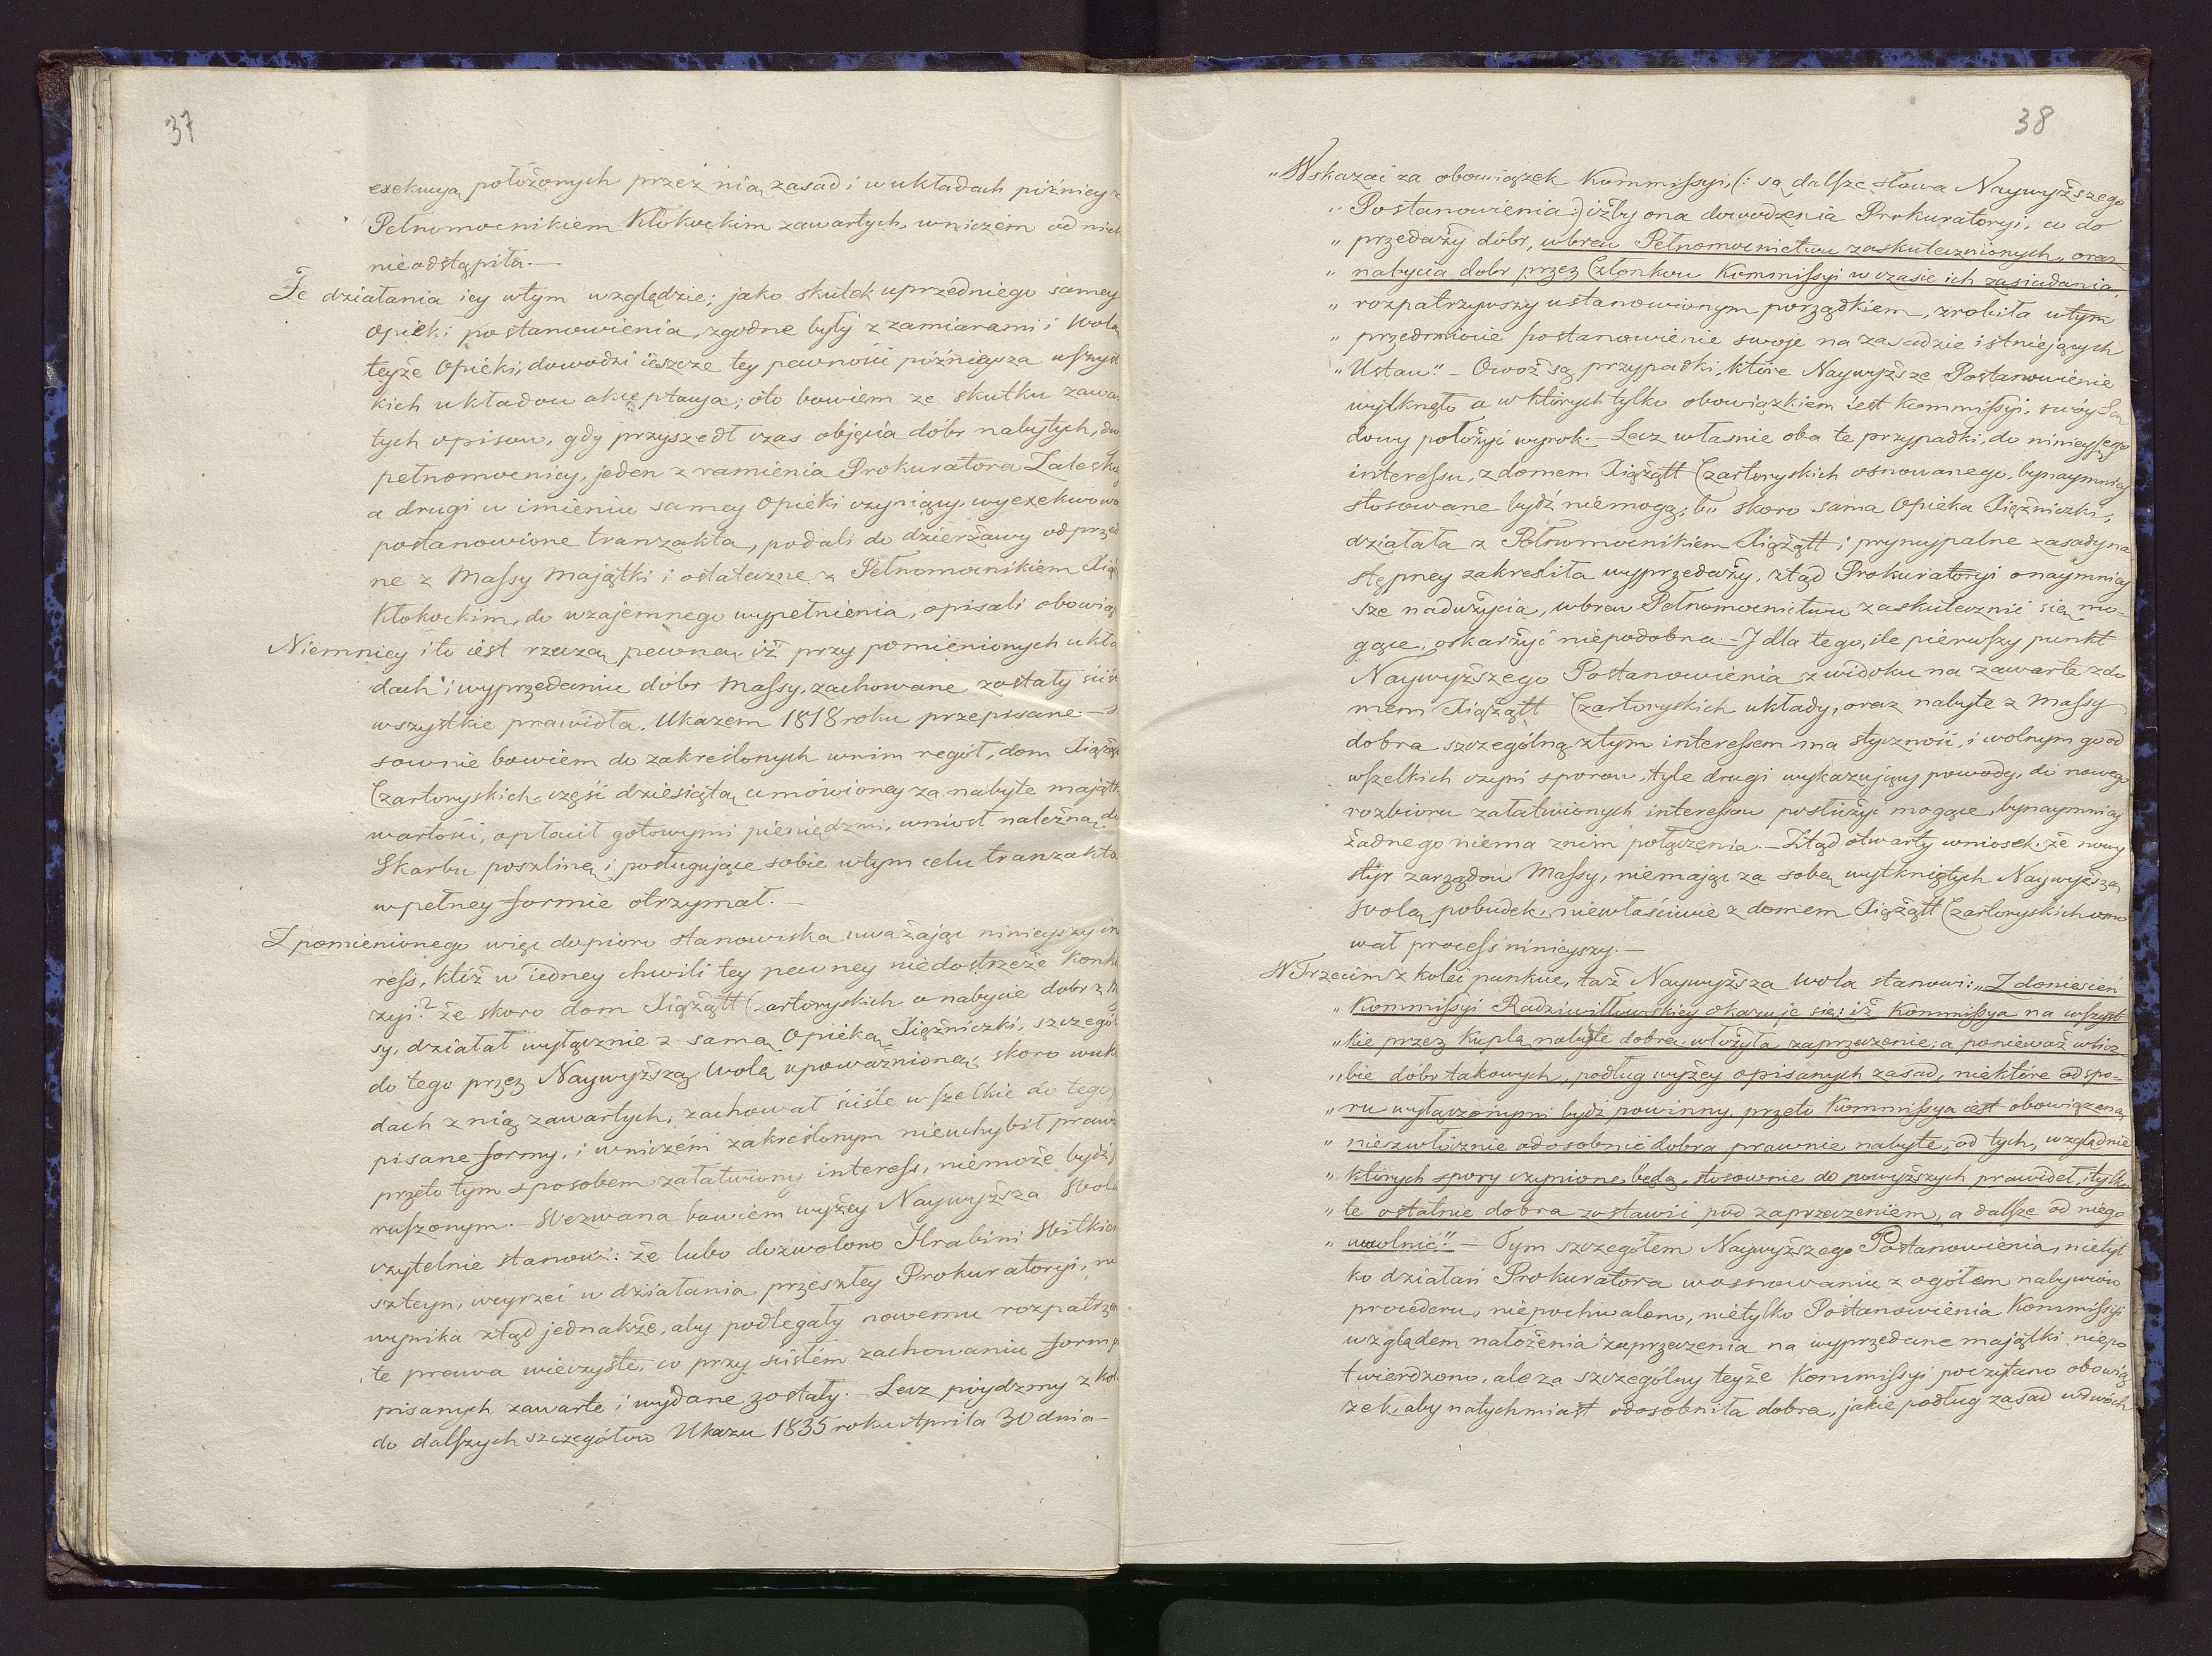 37
exekucyą położonych przez nią zasad i w układach późniey z
Pełnomocnikiem Kłokockim zawartych, w niczém od nich
nieodstąpiła.—
Te działania iey wtym względzie; jako skutek uprzedniego samey
opieki postanowienia, zgodne były z zamiarami i wolą
teyże Opieki; dowodzi ieszcze tey pewności późnieysza wszyst
kich układow akceptacya; oto bowiem ze skutku zawar
tych opisow, gdy przyszedł czas objęcia dóbr nabytych, dw
pełnomocnicy, jeden z ramienia Prokuratora Zalesk
a drugi w imieniu samey Opieki czyniący, wyexekwowa
postanowione tranzakta, podali do dzierżawy odprzed
ne z Massy Majątki i ostateczne z Pełnomocnikiem Xią
Kłokockim, do wzajemnego wypełnienia, opisali obowią
Niemniey i to iest rzeczą pewną, iż przy pomienionych ukła
dach i wyprzedaniu dóbr Massy, zachowane zostały ściśl
wszystkie prawidła, Ukazem 1818 roku przepisane.—
sownie bowiem do zakreślonych w nim reguł, dom Xiążą
Czartoryskich, część dziesiątą umówioney za nabyte majątk
wartości, opłacił gotowymi pieniędzmi, wniosł należną do
Skarbu poszlinę i posługujące sobie wtym celu tranzakta
w pełney formie otrzymał.—
Z pomienionego więc dopioro stanowiska uważając ninieyszy in
ress, któż w iedney chwili tey pewney niedostrzeże Konklu
zyi? że skoro dom Xiążątt Czartoryskich o nabycie dobr z M
sy, działał wyłącznie z samą Opieką Xiężniczki, szczegól
do tego przez Naywyższą Wolą upoważnioną; skoro w ukł
dach z nią zawartych, zachował ściśle wszelkie do tego p
pisane formy, i w niczém zakreślonym nieuchybił praw
przeto tym sposobem załatwiony interess, niemoże bydź p
ruszonym.— Wezwana bowiem wyżey Naywyższa Wola
czytelnie stanowi: że lubo dozwolono Hrabini Witkien
szteyn, weyrzeć w działania przeszłey Prokuratoryi, n
wynika ztąd jednakże, aby podlegały nowemu rozpatrze
te prawa wieczyste, co przy ścisłém zachowaniu form p
pisanych zawarte i wydane zostały.— Lecz póydzmy z kol
do dalszych szczegółow Ukazu 1835 roku Aprila 30 dnia—
38
„Wskazać za obowiązek Kommissyi, (: są dalsze słowa Naywyższego
„ Postanowienia:) iżby ona dowodzenia Prokuratoryi, co do
„ przedaży dóbr, wbrew Pełnomocnictwu zaskutecznionych, oraz
„ nabycia dobr przez Członkow Kommissyi w czasie ich zasiadania,
„ rozpatrzywszy ustanowionym porządkiem, zrobiła wtym
„ przedmiocie postanowienie swoje na zasadzie istniejących
„ Ustaw.“ — Owoż są przypadki, które Naywyższe Postanowienie
wytknęło a w których tylko obowiązkiem iest Kommissyi, swóy Są
dowy położyć wyrok.— Lecz własnie oba te przypadki, do ninieyszego
interessu, z domem Xiążątt Czartoryskich osnowanego, bynaymniey
stosowane bydź niemogą; bo skoro sama Opieka Xiężniczki,
działała z Pełnomocnikiem Xiążątt i pryncypalne zasady na
stępney zakreśliła wyprzedaży, ztąd Prokuratoryi o naymniey
sze nadużycia, wbrew Pełnomocnictwu zaskutecznić się mo-
gące, oskarżyć niepodobna.— I dla tego, ile pierwszy punkt
Naywyższego Postanowienia z widoku na zawarte z do
mem Xiążątt Czartoryskich układy, oraz nabyte z Massy
dobra szczególną z tym interessem ma styczność, i wolnym go od
wszelkich czyni sporow, tyle drugi wykazujący powody, do nowego
rozbioru załatwionych interessow posłużyć mogące, bynaymniey
żadnego niema z nim połączenia.— Ztąd otwarty wniosek, że nowy
styr zarządow Massy, niemając za sobą wytkniętych Naywyższą
Wolą pobudek, niewłaściwie z domem Xiążątt Czartoryskich osno
wał process ninieyszy.—
W Trzecim z kolei punkcie, taż Naywyższa Wola stanowi: „Z doniesień
„ Kommissyi Radziwiłłowskiey okazuje się: iż Kommissya na wszyst
„ kie przez kuplą nabyte dobra włożyła zaprzeczenie: a ponieważ w licz
„ bie dóbr takowych, podług wyżey opisanych zasad, niektóre od spo-
„ ru wyłączonymi bydź powinny, przeto Kommissya iest obowiązaną,
„ niezwłócznie odosobnić dobra prawnie nabyte, od tych, względnie
„ których spory czynione będą, stosownie do powyższych prawideł, i tylko
„ te ostatnie dobra zostawić pod zaprzeczeniem, a dalsze od niego
„ uwolnić.“ — Tym szczegółem Naywyższego Postanowienia, nietyl
ko działań Prokuratora w osnowaniu z ogółem nabywców
procederu, niepochwalono, nietylko Postanowienia Kommissyi
względem nałożenia zaprzeczenia na wyprzedane majątki niepo
twierdzono, ale za szczególny teyże Kommissyi poczytano obowią
zek, aby natychmiast odosobniła dobra, jakie podług zasad w dwóch